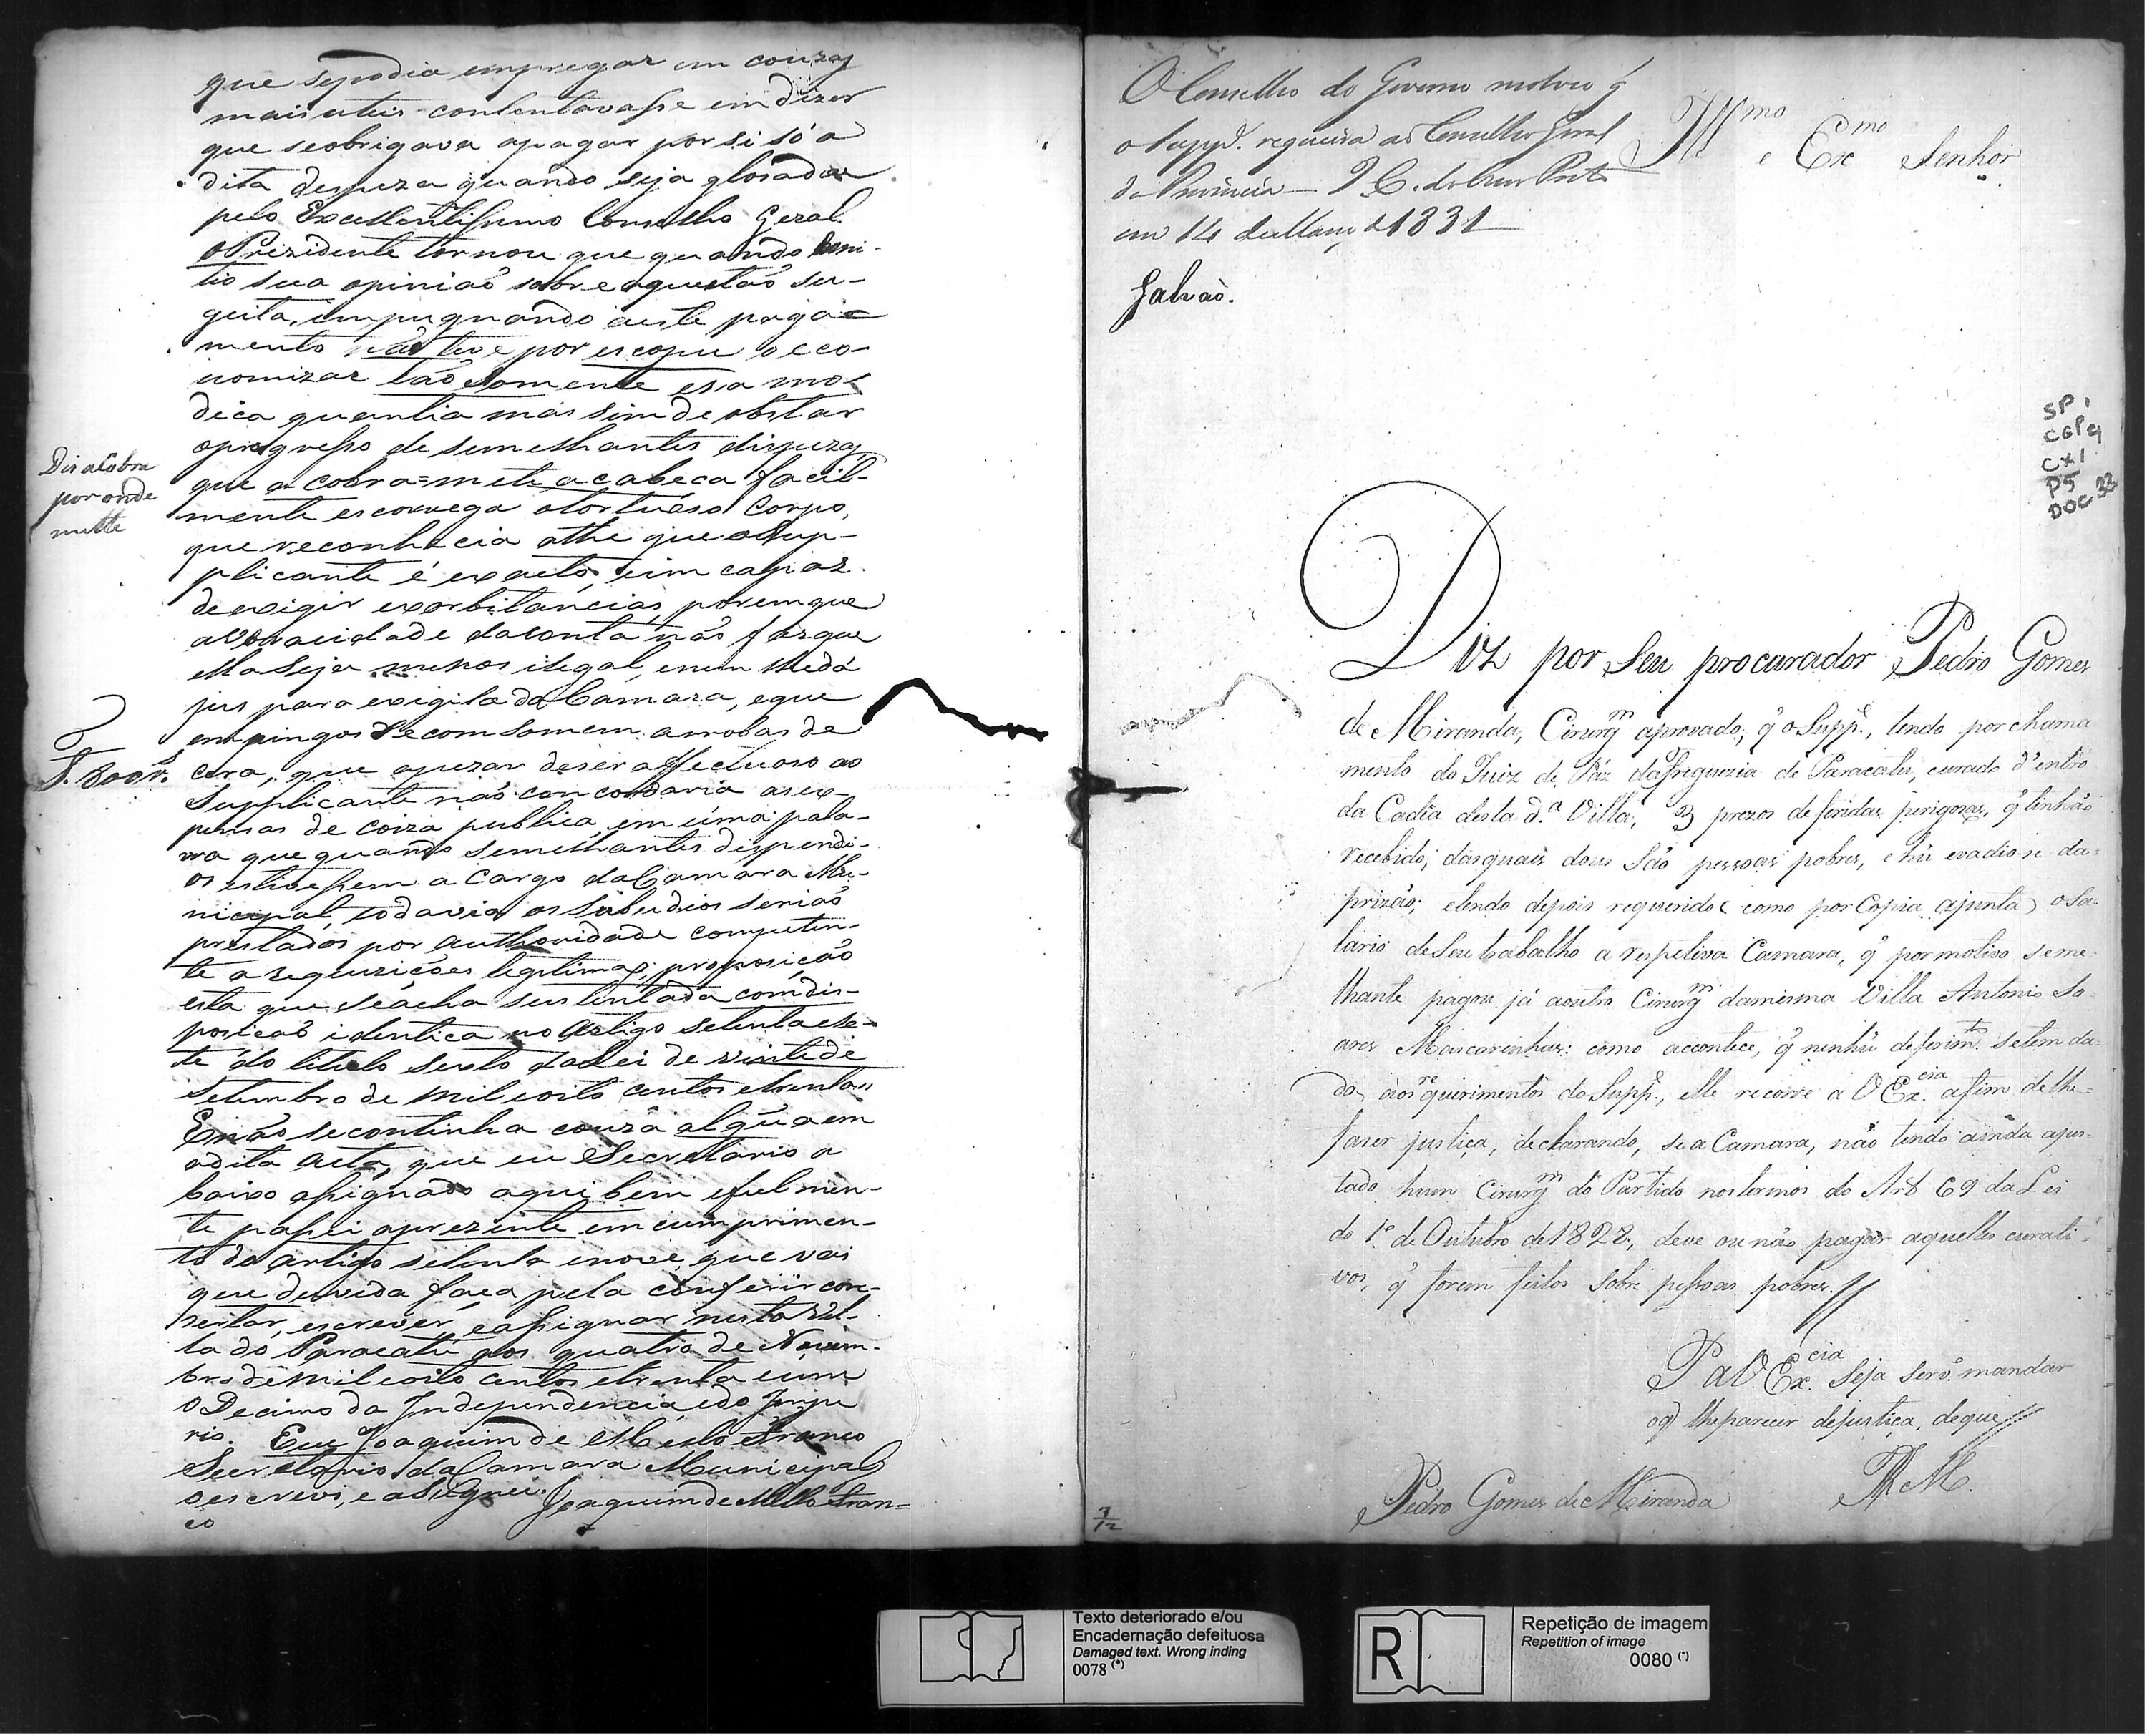 que sepodia empregar em couzas
mais uteis contentavasse em dizer
que seobrigava apagar por si só a
dita despeza quando seja glosada
pelo Excellentissimo Conselho Geral
o Prezidente tornou que quando emi-
tio sua opinião sobre aquestão su-
geita, impugnando aeste paga=
mento não teve por escopu o eco-
nomizar tão somente esa mo-
dica quantia mas sim de obstar
oprogresso de semelhantes dispezas
que a cobra=mete a cabeca facil-
mente escorrega otortuoso Corpo,
que reconhecia athe que oSup-
plicante é exacto, eim capaz
deexigir exorbitancias, porem que
averacidade daconta não faz que
ella seja menos ilegal, enem lhedá
jus para exigila da Camara, eque
em pingos se comsomem arrobas de
cera, que apezar deser affectuoso ao
Supplicante não concordaria asex-
pensas de coiza publica, em uma pala-
vra que quando semelhantes dispendi-
os estivessem a Cargo da Camara Mu-
nicipal, todavia os subsidios serião
prestados por authoridade competen-
te a requizições legitimas, proposição
esta que seacha sustentada comdis-
posicaõ identica no Artigo setenta e se-
te do titulo sexto da Lei de vinte de
Setembro de mil eoito centos etrinta
Enão secontinha couza algũa em
adita Acta, que eu Secretario a
baixo assignado aqui bem efielmen-
te passei aprezente em cumprimen-
to do artigo setenta enove, que vai
que duvida faca pela conferir con-
sertar, escrever, eassignar nesta Vil-
la do Paracatú aos quatro de Novem-
bro de mil eoito centos etrinta eum
o Decimo da Independencia, edo Impe
rio. Eu Joaquim de Mello Franco
Secretario da Camara Municipal
o escrevi, e asignei. Joaquim de Mello Fran=
co
Diz a cobra
por onde
mette
O Conselho do Governo resolveo q̃
o Supp.e requeira ao Conselho Geral
da Provincia — I C. do Ouro Preto
em 14 de Março d 1831
Galvaõ.
Illmo e Exmo Senhor
SP 1
CGP 9
CX 1
P5
DOC 33
Diz por seu procurador Pedro Gomes
de Miranda, Cirurgm aprovado, q̃ o Supp.e, tendo por chama
mento do Juiz de Páz da freguezia de Paracatu, curado d'entro
da Cadia desta d.a Villa, 3 prezos de feridas perigozas, q̃ tinhão
recebido; dos quais dous são pessoas pobres, e hũ evadio-se da
prizão; etendo depois requerido (como por Copia ajunta) o sa-
lario de Seu trabalho a respetiva Camara, q̃ por motivo seme-
lhante pagou já aoutro Cirurgm damesma Villa Antonio So-
ares Mascarenhas: como accontece, q̃ nenhũ deferim.to setem da-
do aos requirimentos do Supp.e, elle recorre a V Ex.cia afim delhe
fazer justiça, declarando, se a Camara, não tendo ainda ajus-
tado hum Cirurgm do Partido nos termos do Art 69 da Lei
do 1.º de Outubro de 1828, deve ou não pagar aquelles curati-
vos, q̃ forem feitos sobre pessoas pobres.//
P a V. Ex.cia seja serv.o mandar
oq̃ lheparecer dejustiça, deque//
E R M.
Pedro Gomes de Miranda
Texto deteriorado e/ou
Encadernação defeituosa
Damaged text. Wrong inding
0078 (*)
R
Repetição de imagem
Repetition of image
0080 (*)